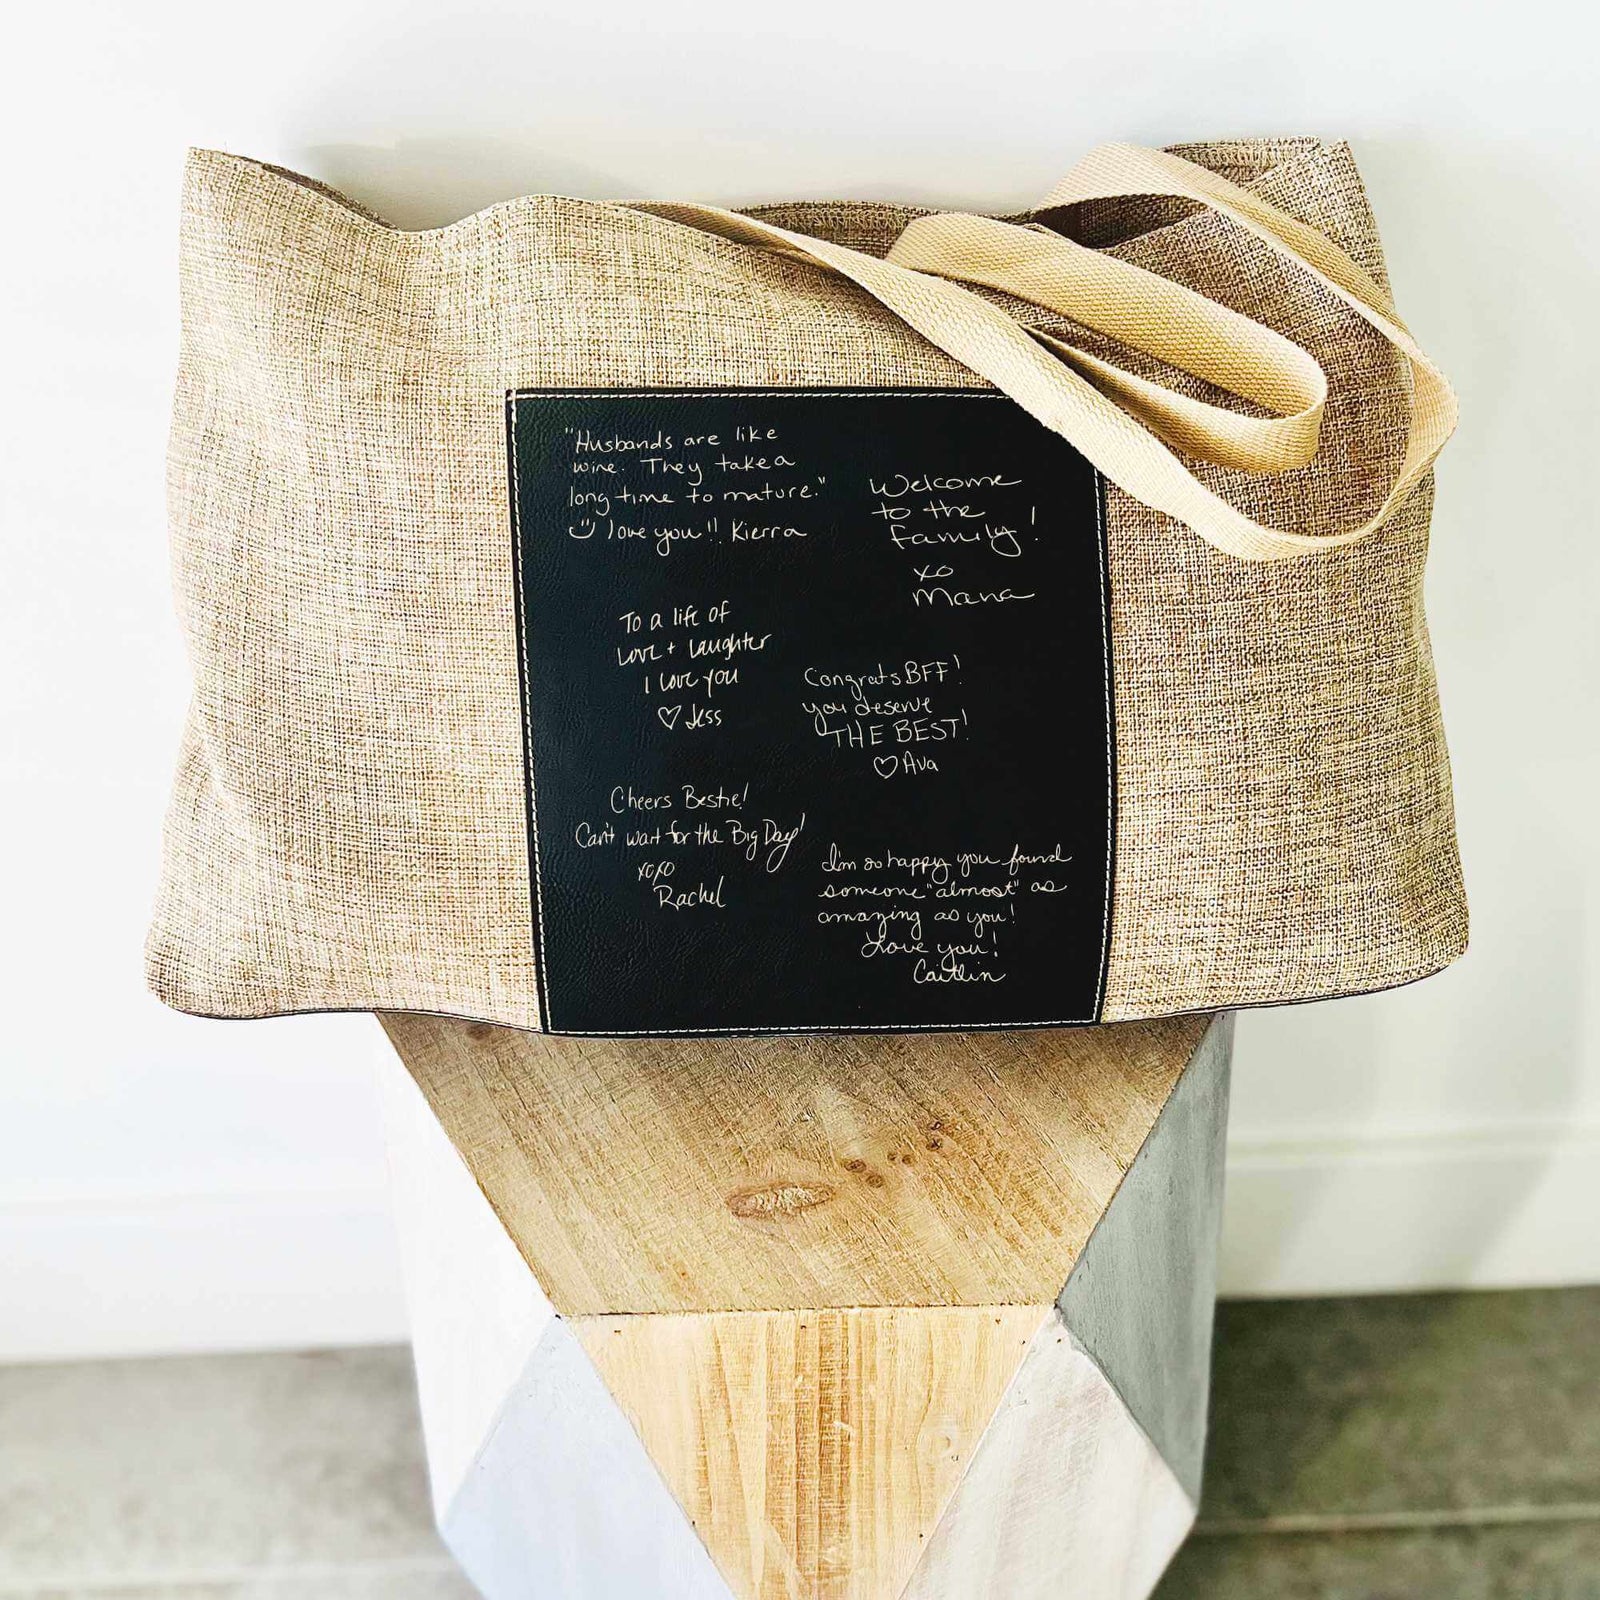 "Husbands are like
wine. They take a
long time to mature."
love you!! Kierra
Welcome
to the
Family!
xo
Mana
To a life of
Love + Laughter
I love you
♡ Jess
Congrats BFF!
you deserve
THE BEST!
♡ Ava
Cheers Bestie!
Can't wait for the Big Day!
xoxo
Rachel
I'm so happy you found
someone "almost" as
amazing as you!
Love you!
Caitlin